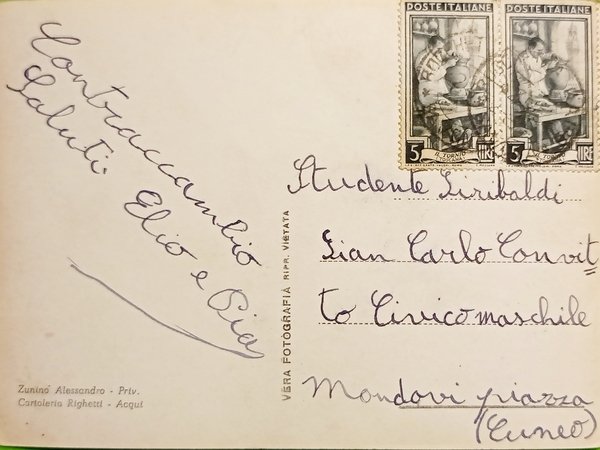 Contraccambio
Saluti Elio e Pia
POSTE ITALIANE
5 IL TORNIO LIRE
POSTE ITALIANE
5 IL TORNIO LIRE
Studente Giribaldi
Gian Carlo Convit
to Civico maschile
Mondovi piazza
(Cuneo)
VERA FOTOGRAFIA RIPR. VIETATA
Zunino Alessandro - Priv.
Cartoleria Righetti - Acqui